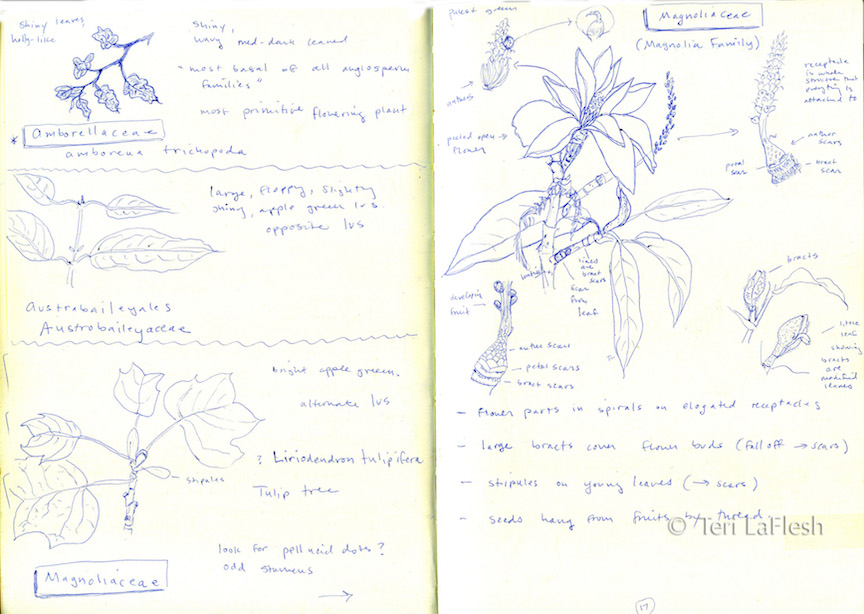 shiny leaves,
holly-like
shiny,
wavy med-dark leaved
- "most basal of all angiosperm
families"
most primitive flowering plant
* Amborellaceae
amborella trichopoda
large, floppy, slightly
shiny, apple green lvs.
opposite lvs
Austrobaileyales
Austrobaileyaceae
bright apple green.
alternate lvs
stipules
? Liriodendron tulipifera
Tulip tree
look for pellucid dots?
odd stamens
Magnoliaceae
green
Magnoliaceae
(Magnolia Family)
anthers
peeled open
flower
receptacle
is whole
structure that
everything is
attached to
anther
scars
petal
scar
bract
scar
lines
are
bract
scars
scar
from
leaf
developing
fruit
anther scars
petal scars
bract scars
bracts
little
leaf
showing
bracts
are
modified
leaves
- Flower parts in spirals on elogated receptacles
- large bracts cover flower buds (fall off → scars)
- stipules on young leaves (→ scars)
- seeds hang from fruits by thread.
© Teri LaFlesh
17